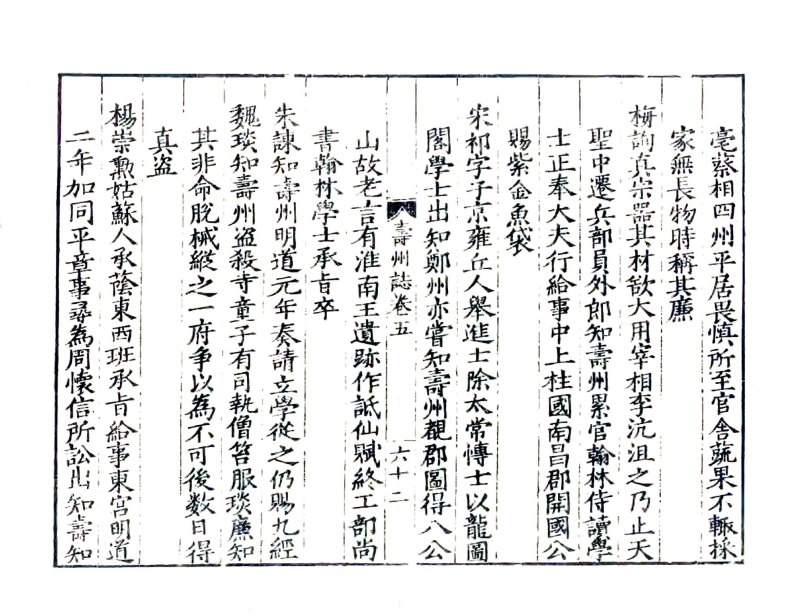 亳蔡相四州平居畏慎所至官舍蔬果不輙採
家無長物時稱其廉
梅詢真宗器其材欲大用宰相李沆沮之乃止天
聖中遷兵部員外郎知壽州累官翰林侍讀學
士正奉大夫行給事中上柱國南昌郡開國公
賜紫金魚袋
宋祁字子京雍丘人舉進士除太常博士以龍圖
閣學士出知鄭州亦嘗知壽州覩郡圖得八公
壽州誌卷五
六十二
山故老言有淮南王遺跡作詆仙賦終工部尚
書翰林學士承旨卒
朱諫知壽州明道元年奏請立學從之仍賜九經
魏琰知壽州盜殺寺童子有司執僧笞服琰廉知
其非命脫械縱之一府争以為不可後数日得
真盜
楊崇勲姑蘇人承蔭東西班承旨給事東宫明道
二年加同平章事尋為周懷信所訟出知壽知